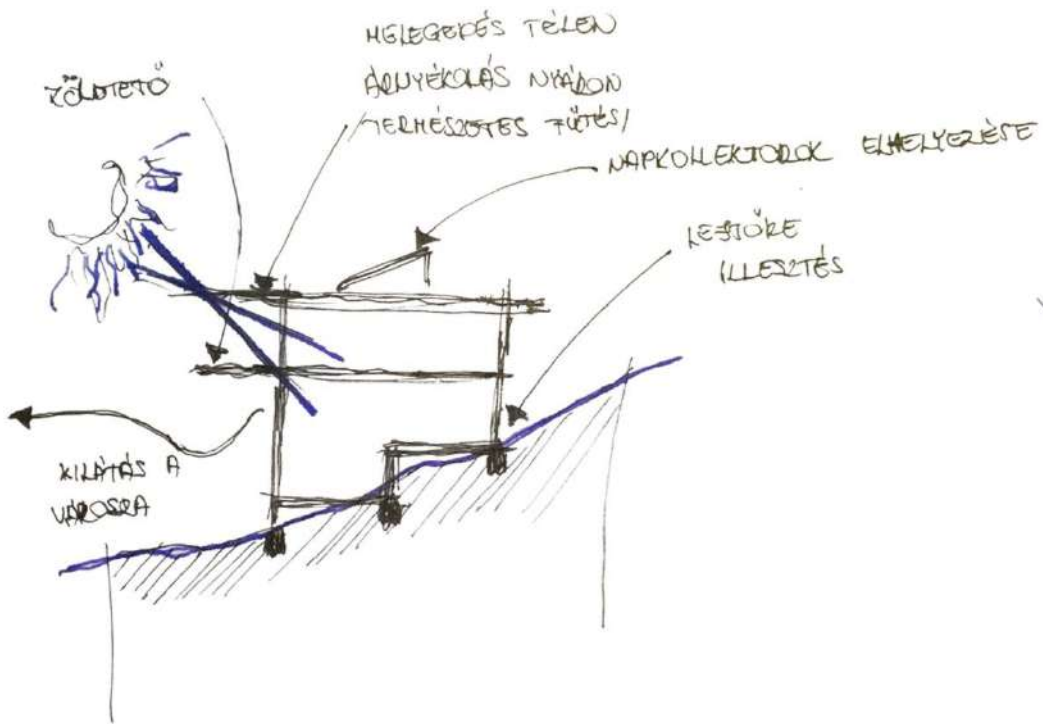 ZÖLDTETŐ
MELEGEDÉS TÉLEN
ÁRNYÉKOLÁS NYÁRON
TERMÉSZETES FŰTÉS/
NAPKOLLEKTOROK ELHELYEZÉSE
LEJTŐRE
ILLESZTÉS
KILÁTÁS A
VÁROSRA